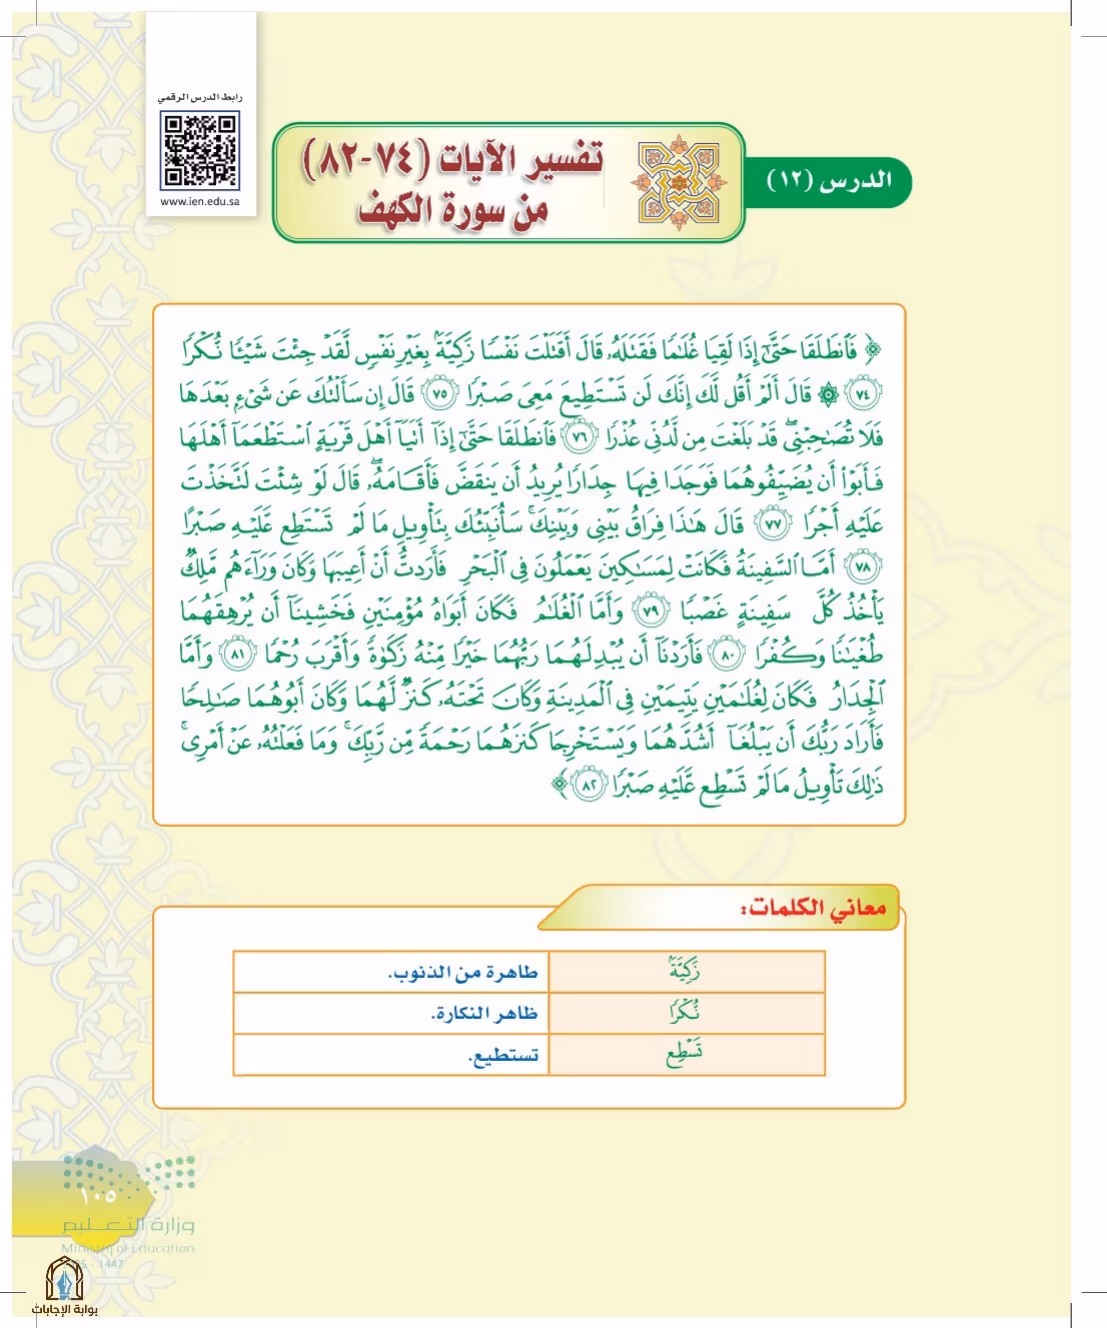 رابط الدرس الرقمي
www.ien.edu.sa
الدرس (١٢)
تفسير الآيات (٧٤-٨٢)
من سورة الكهف
﴿ فَٱنطَلَقَا حَتَّىٰٓ إِذَا لَقِيَا غُلَٰمٗا فَقَتَلَهُۥ قَالَ أَقَتَلۡتَ نَفۡسٗا زَكِيَّةَۢ بِغَيۡرِ نَفۡسٖ لَّقَدۡ جِئۡتَ شَيۡـٔٗا نُّكۡرٗا
٧٤ ۞ قَالَ أَلَمۡ أَقُل لَّكَ إِنَّكَ لَن تَسۡتَطِيعَ مَعِيَ صَبۡرٗا ٧٥ قَالَ إِن سَأَلۡتُكَ عَن شَيۡءِۭ بَعۡدَهَا
فَلَا تُصَٰحِبۡنِيۖ قَدۡ بَلَغۡتَ مِن لَّدُنِّي عُذۡرٗا ٧٦ فَٱنطَلَقَا حَتَّىٰٓ إِذَآ أَتَيَآ أَهۡلَ قَرۡيَةٍ ٱسۡتَطۡعَمَآ أَهۡلَهَا
فَأَبَوۡاْ أَن يُضَيِّفُوهُمَا فَوَجَدَا فِيهَا جِدَارٗا يُرِيدُ أَن يَنقَضَّ فَأَقَامَهُۥۖ قَالَ لَوۡ شِئۡتَ لَتَّخَذۡتَ
عَلَيۡهِ أَجۡرٗا ٧٧ قَالَ هَٰذَا فِرَاقُ بَيۡنِي وَبَيۡنِكَۚ سَأُنَبِّئُكَ بِتَأۡوِيلِ مَا لَمۡ تَسۡتَطِع عَّلَيۡهِ صَبۡرًا
٧٨ أَمَّا ٱلسَّفِينَةُ فَكَانَتۡ لِمَسَٰكِينَ يَعۡمَلُونَ فِي ٱلۡبَحۡرِ فَأَرَدتُّ أَنۡ أَعِيبَهَا وَكَانَ وَرَآءَهُم مَّلِكٞ
يَأۡخُذُ كُلَّ سَفِينَةٍ غَصۡبٗا ٧٩ وَأَمَّا ٱلۡغُلَٰمُ فَكَانَ أَبَوَاهُ مُؤۡمِنَيۡنِ فَخَشِينَآ أَن يُرۡهِقَهُمَا
طُغۡيَٰنٗا وَكُفۡرٗا ٨٠ فَأَرَدۡنَآ أَن يُبۡدِلَهُمَا رَبُّهُمَا خَيۡرٗا مِّنۡهُ زَكَوٰةٗ وَأَقۡرَبَ رُحۡمٗا ٨١ وَأَمَّا
ٱلۡجِدَارُ فَكَانَ لِغُلَٰمَيۡنِ يَتِيمَيۡنِ فِي ٱلۡمَدِينَةِ وَكَانَ تَحۡتَهُۥ كَنزٞ لَّهُمَا وَكَانَ أَبُوهُمَا صَٰلِحٗا
فَأَرَادَ رَبُّكَ أَن يَبۡلُغَآ أَشُدَّهُمَا وَيَسۡتَخۡرِجَا كَنزَهُمَا رَحۡمَةٗ مِّن رَّبِّكَۚ وَمَا فَعَلۡتُهُۥ عَنۡ أَمۡرِيۚ
ذَٰلِكَ تَأۡوِيلُ مَا لَمۡ تَسۡطِع عَّلَيۡهِ صَبۡرٗا ٨٢ ﴾
معاني الكلمات:
زَكِيَّةَۢ طاهرة من الذنوب.
نُّكۡرٗا ظاهر النكارة.
تَسۡطِع تستطيع.
١٠٥
وزارة التعليم
Ministry of Education
1447
بوابة الإجابات